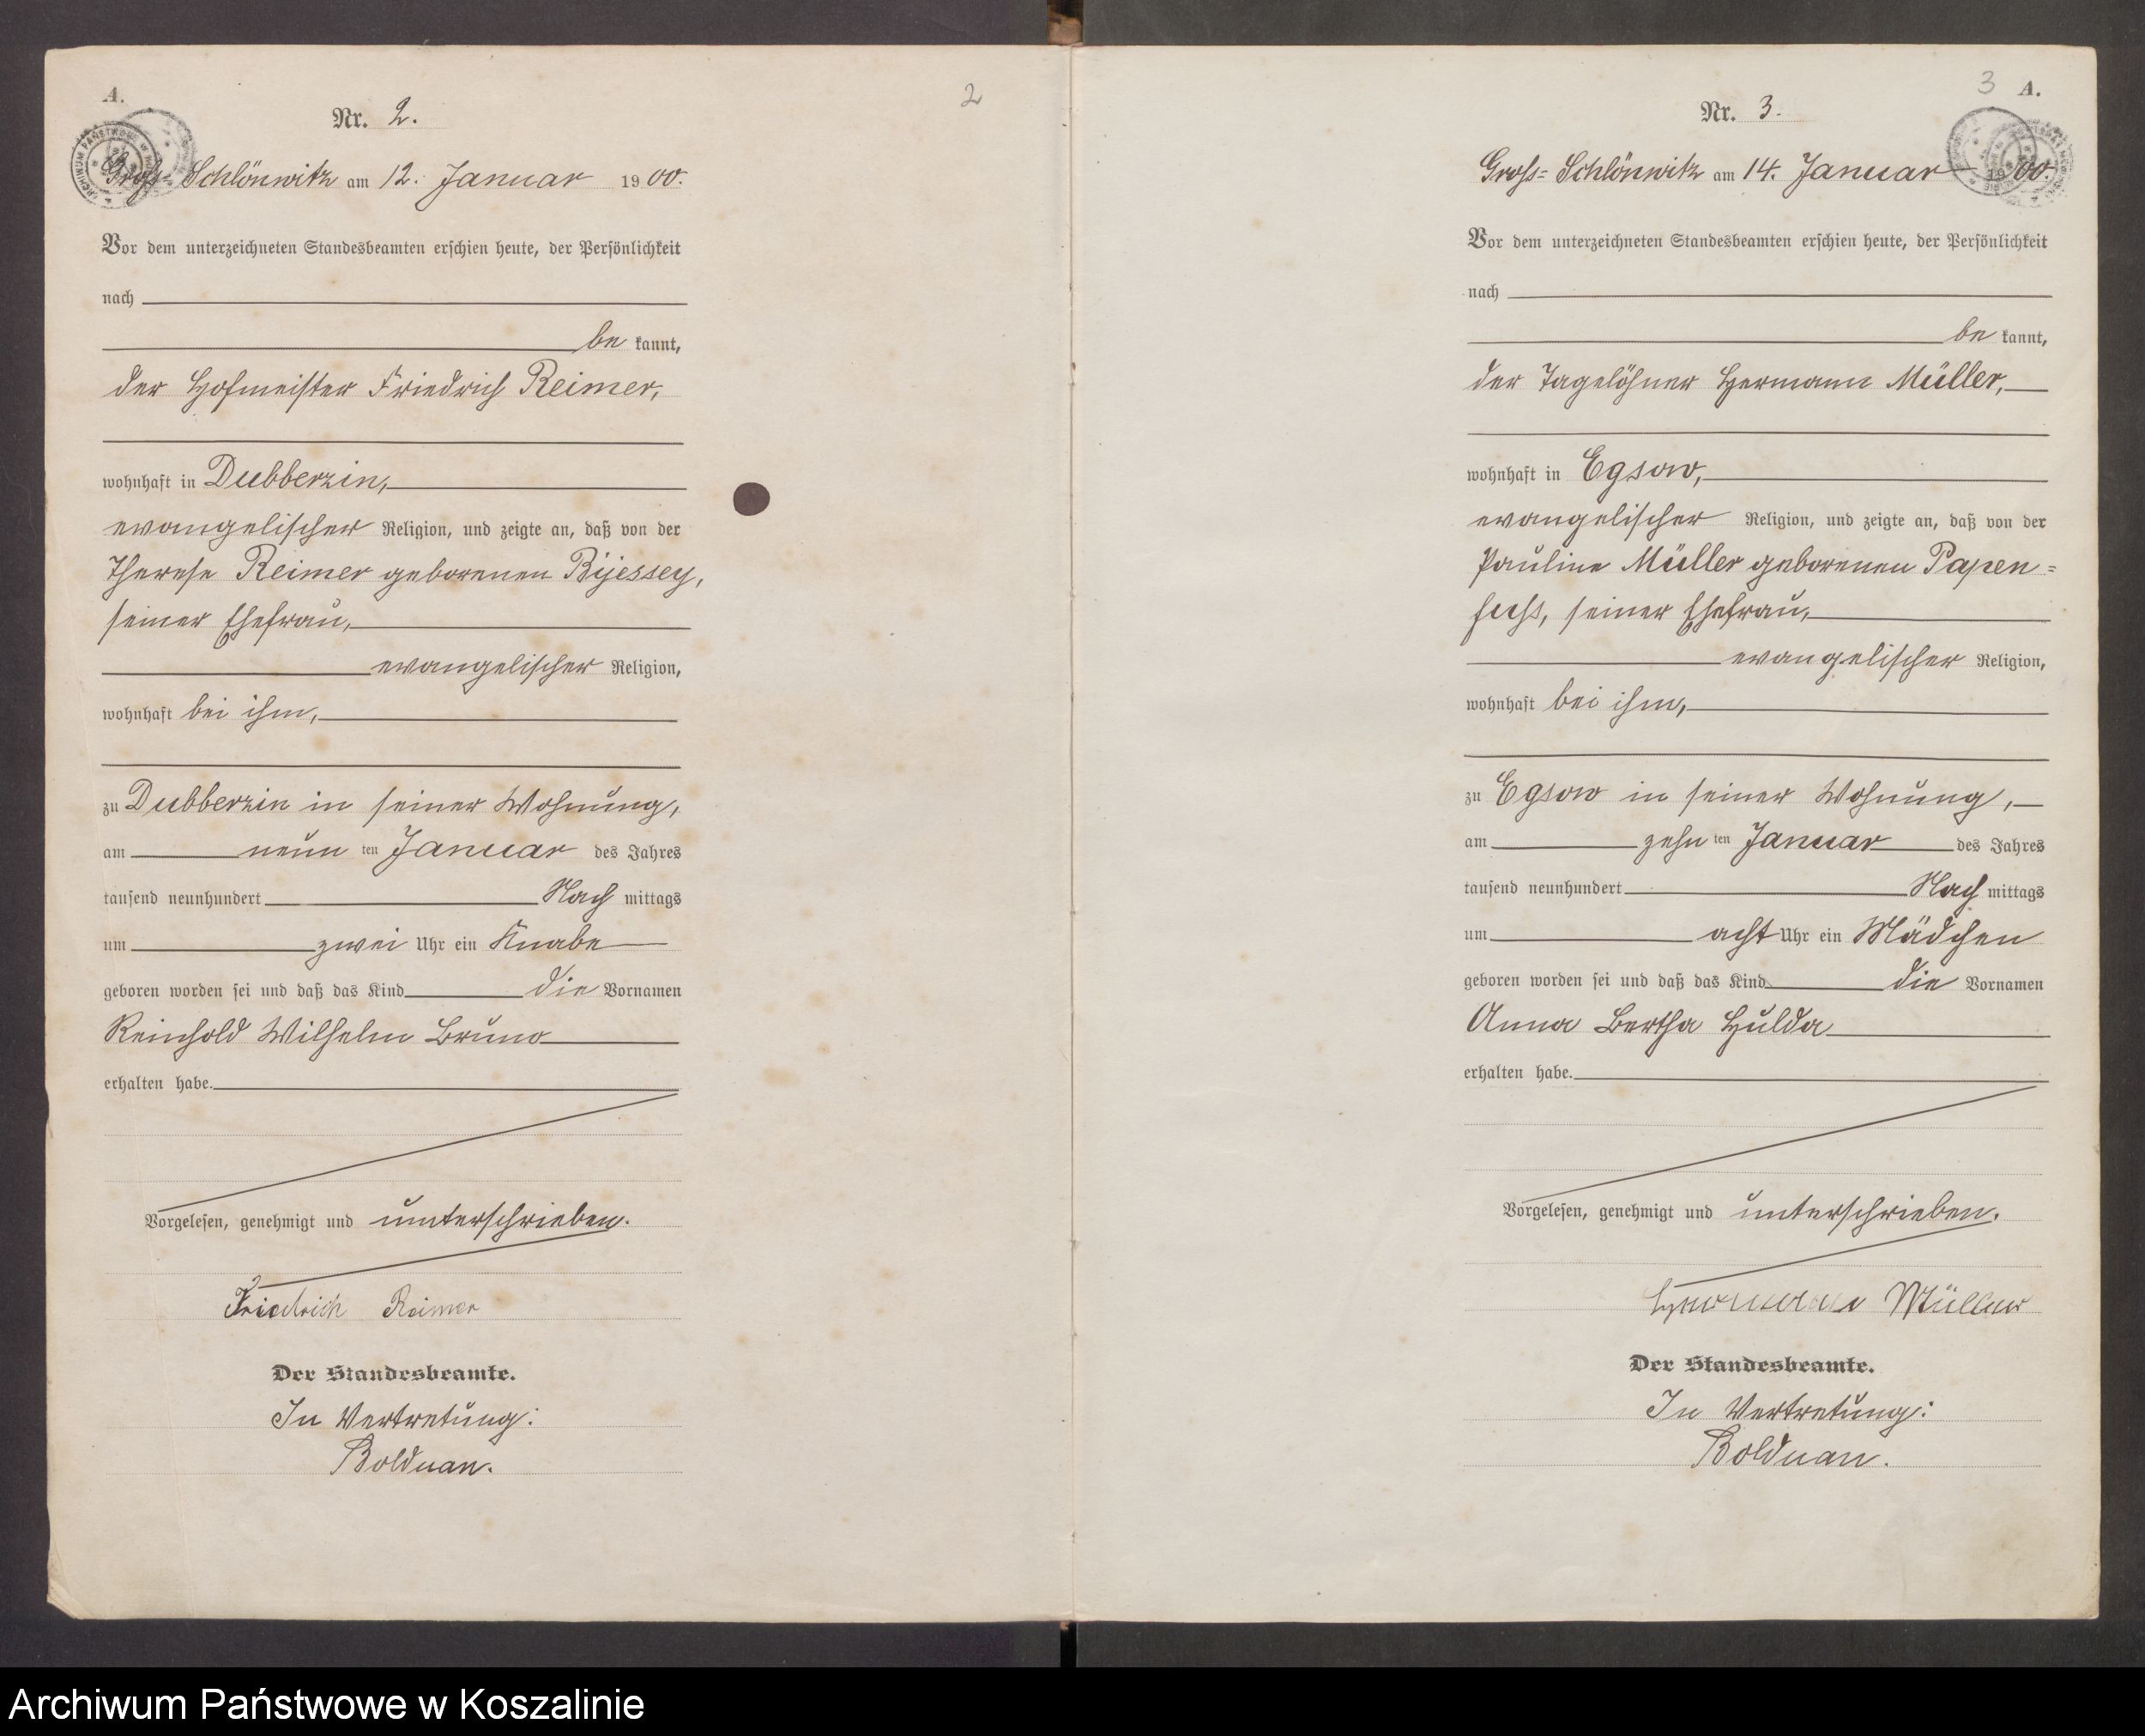 A.
2
Nr. 2.
Groß-Schlönwitz am 12. Januar 1900.
Vor dem unterzeichneten Standesbeamten erschien heute, der Persönlichkeit
nach
be kannt,
der Hofmeister Friedrich Reimer,
wohnhaft in Dubberzin,
evangelischer Religion, und zeigte an, daß von der
Therese Reimer geborenen Bijessey,
seiner Ehefrau,
evangelischer Religion,
wohnhaft bei ihm,
zu Dubberzin in seiner Wohnung,
am neun ten Januar des Jahres
tausend neunhundert Nach mittags
um zwei Uhr ein Knabe
geboren worden sei und daß das Kind die Vornamen
Reinhold Wilhelm Bruno
erhalten habe.
Vorgelesen, genehmigt und unterschrieben.
Friedrich Reimer
Der Standesbeamte.
In Vertretung:
Bolduan.
3 A.
Nr. 3.
Groß=Schlönwitz am 14. Januar 1900.
Vor dem unterzeichneten Standesbeamten erschien heute, der Persönlichkeit
nach
be kannt,
der Tagelöhner Hermann Müller,
wohnhaft in Egsow,
evangelischer Religion, und zeigte an, daß von der
Pauline Müller geborenen Papen=
fuhs, seiner Ehefrau,
evangelischer Religion,
wohnhaft bei ihm,
zu Egsow in seiner Wohnung,
am zehn ten Januar des Jahres
tausend neunhundert Nach mittags
um acht Uhr ein Mädchen
geboren worden sei und daß das Kind die Vornamen
Anna Bertha Hulda
erhalten habe.
Vorgelesen, genehmigt und unterschrieben.
Hermann Müller
Der Standesbeamte.
In Vertretung:
Bolduan.
Archiwum Państwowe w Koszalinie